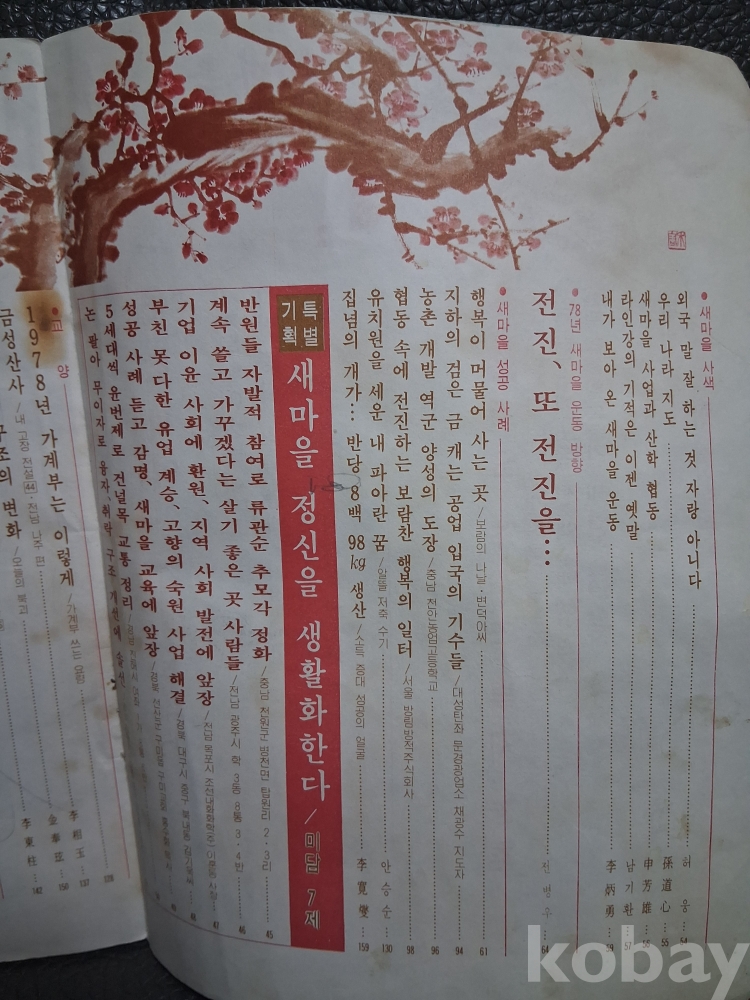 ● 새마을 사색
외국 말 잘 하는 것 자랑 아니다 허 웅 54
우리 나라 지도 孫道心 55
새마을 사업과 산학 협동 申芳雄
라인강의 기적은 이젠 옛말 남기환 57
내가 보아 온 새마을 운동 李炳勇 59
● 78년 새마을 운동 방향
전진, 또 전진을… 64
● 새마을 성공 사례
행복이 머물어 사는 곳/보람의 나날·변덕아씨 61
지하의 검은 금 캐는 공업 입국의 기수들/대성탄좌 문경광업소 채광수 지도자 94
농촌 개발 역군 양성의 도장/충남 천안농업고등학교 96
협동 속에 전진하는 보람찬 행복의 일터/서울 방림방적주식회사 98
유치원을 세운 내 파아란 꿈/알뜰 저축 수기 안승순 130
집념의 개가… 반당 8백 98kg 생산/소득 증대 성공의 얼굴 李寬燮 159
특별기획 새마을 정신을 생활화한다/미담 7제
반원들 자발적 참여로 류관순 추모각 정화/충남 천원군 병천면 탑원리 2·3리 45
계속 쓸고 가꾸겠다는 살기 좋은 곳 사람들/전남 광주시 학 3동 8통 3·4반 46
기업 이윤 사회에 환원, 지역 사회 발전에 앞장/전남 목포시 조선내화화학(주) 이훈동 사장 47
부친 못다한 유업 계승, 고향의 숙원 사업 해결/경북 대구시 중구 북내동 48
성공 사례 듣고 감명, 새마을 교육에 앞장/경북 선산군 구미읍 49
5세대씩 윤번제로 건널목 교통 정리
논 팔아 무이자로 융자, 취락 구조 개선에 솔선
● 교양
1978년 가계부는 이렇게/가계부 쓰는 요령 李相玉 137
금성산사/내 고장 전설 44·전남 나주 편 金奉鎹 150
구조의 변화/오늘의 북괴 李東柱 142
kobay